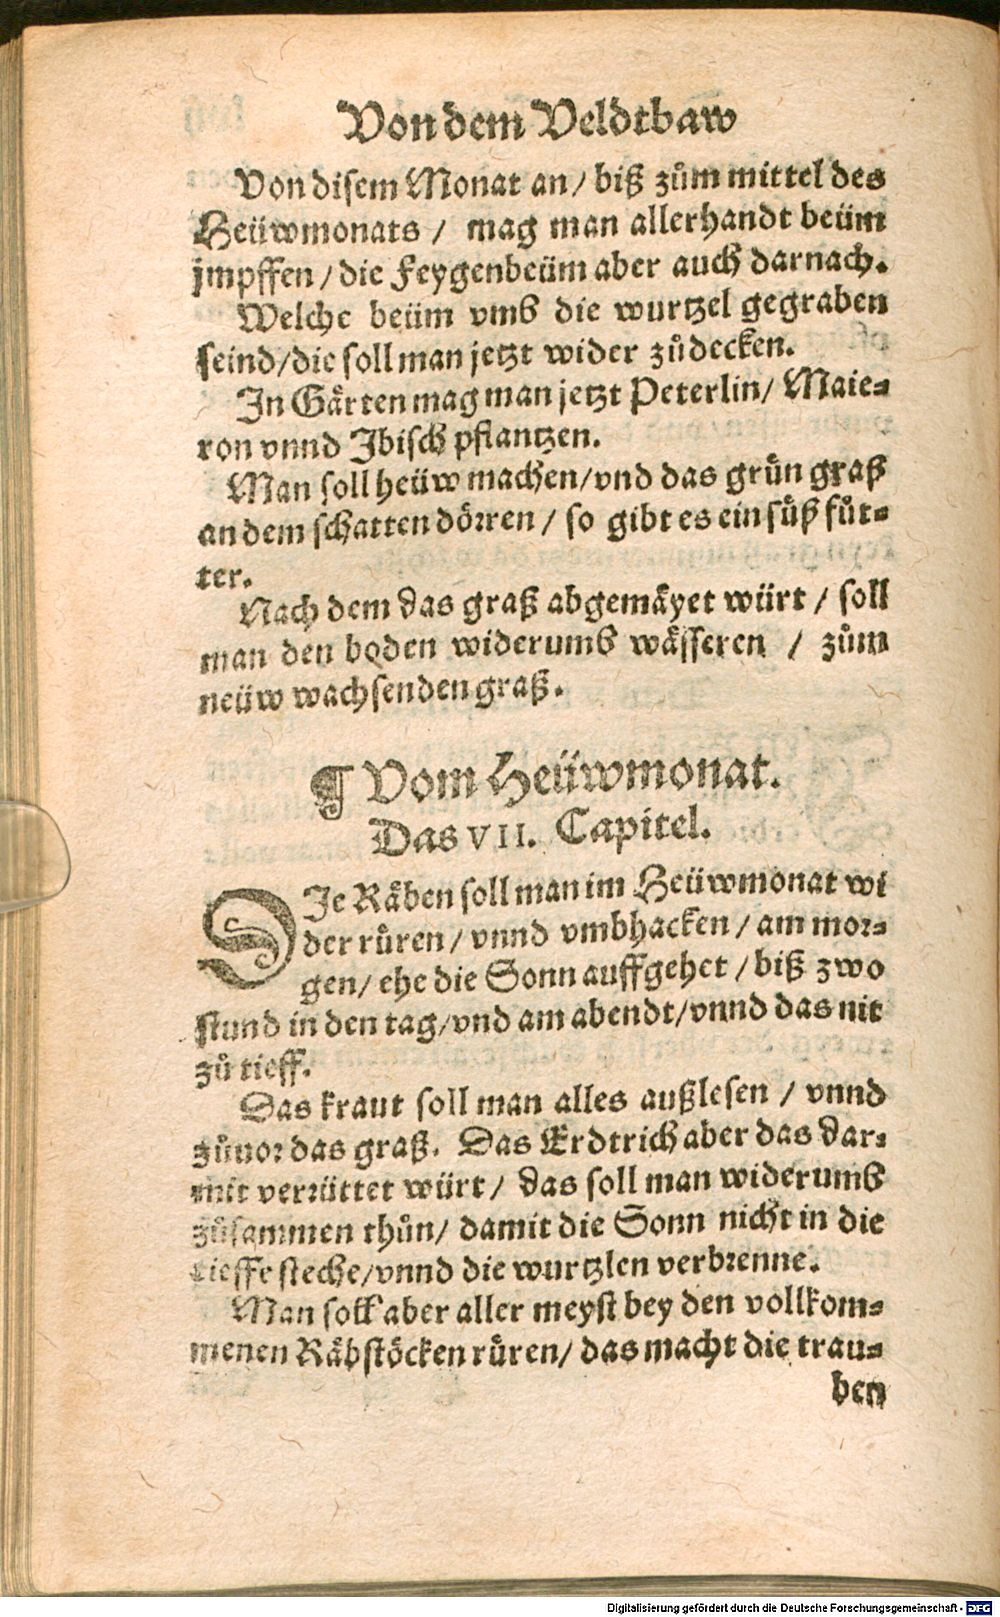 Von dem Veldtbaw
Von disem Monat an / biß zům mittel des
Heüwmonats / mag man allerhandt beüm
jmpffen / die Feygenbeüm aber auch darnach.
Welche beüm vmb die wurtzel gegraben
seind/die soll man jetzt wider zůdecken.
In Gärten mag man jetzt Peterlin/ Maie-
ron vnnd Ibisch pflantzen.
Man soll heüw machen/vnd das grün graß
an dem schatten dörren / so gibt es ein süß fůt-
ter.
Nach dem das graß abgemäyet würt / soll
man den boden widerumb wässeren / zům
neüw wachsenden graß.
¶ Vom Heüwmonat.
Das VII. Capitel.
DIe Räben soll man im Heüwmonat wi
der růren / vnnd vmbhacken / am mor-
gen/ ehe die Sonn auffgehet / biß zwo
stund in den tag/vnd am abendt/vnnd das nit
zů tieff.
Das kraut soll man alles außlesen / vnnd
zůuor das graß. Das Erdtrich aber das dar-
mit verrüttet würt / das soll man widerumb
zůsammen thůn/ damit die Sonn nicht in die
tieffe steche/vnnd die wurtzlen verbrenne.
Man soll aber aller meyst bey den vollkom-
menen Räbstöcken růren/ das macht die trau-
ben
Digitalisierung gefördert durch die Deutsche Forschungsgemeinschaft - DFG